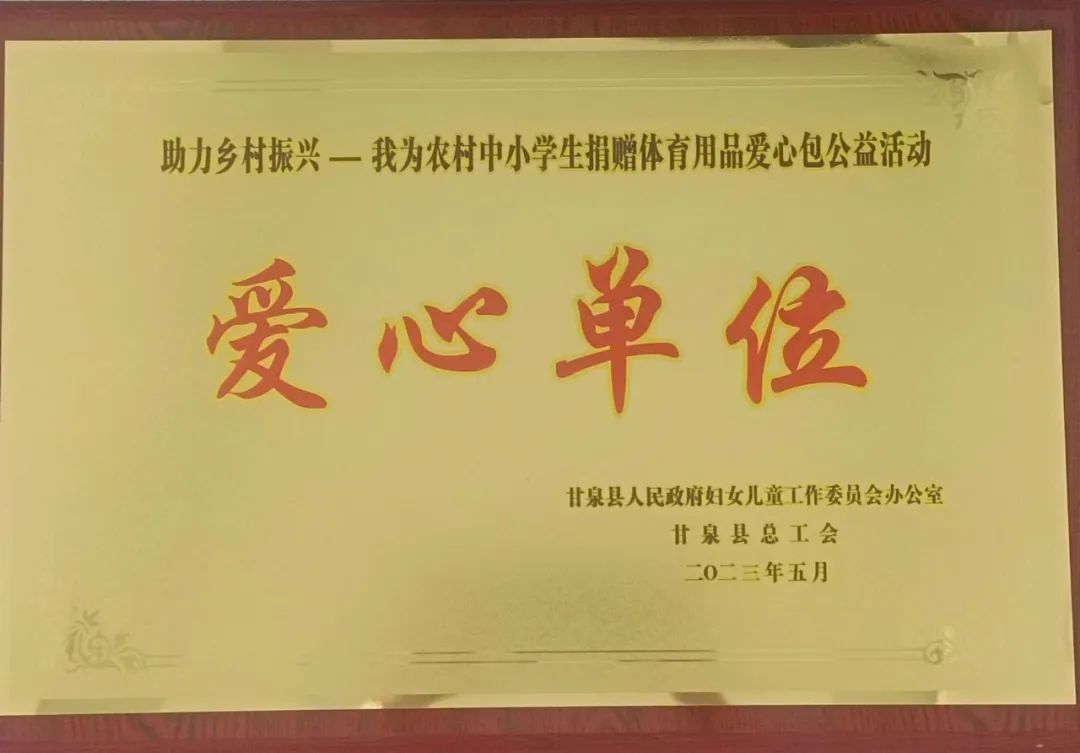 助力乡村振兴 — 我为农村中小学生捐赠体育用品爱心包公益活动
爱心单位
甘泉县人民政府妇女儿童工作委员会办公室
甘泉县总工会
二〇二三年五月